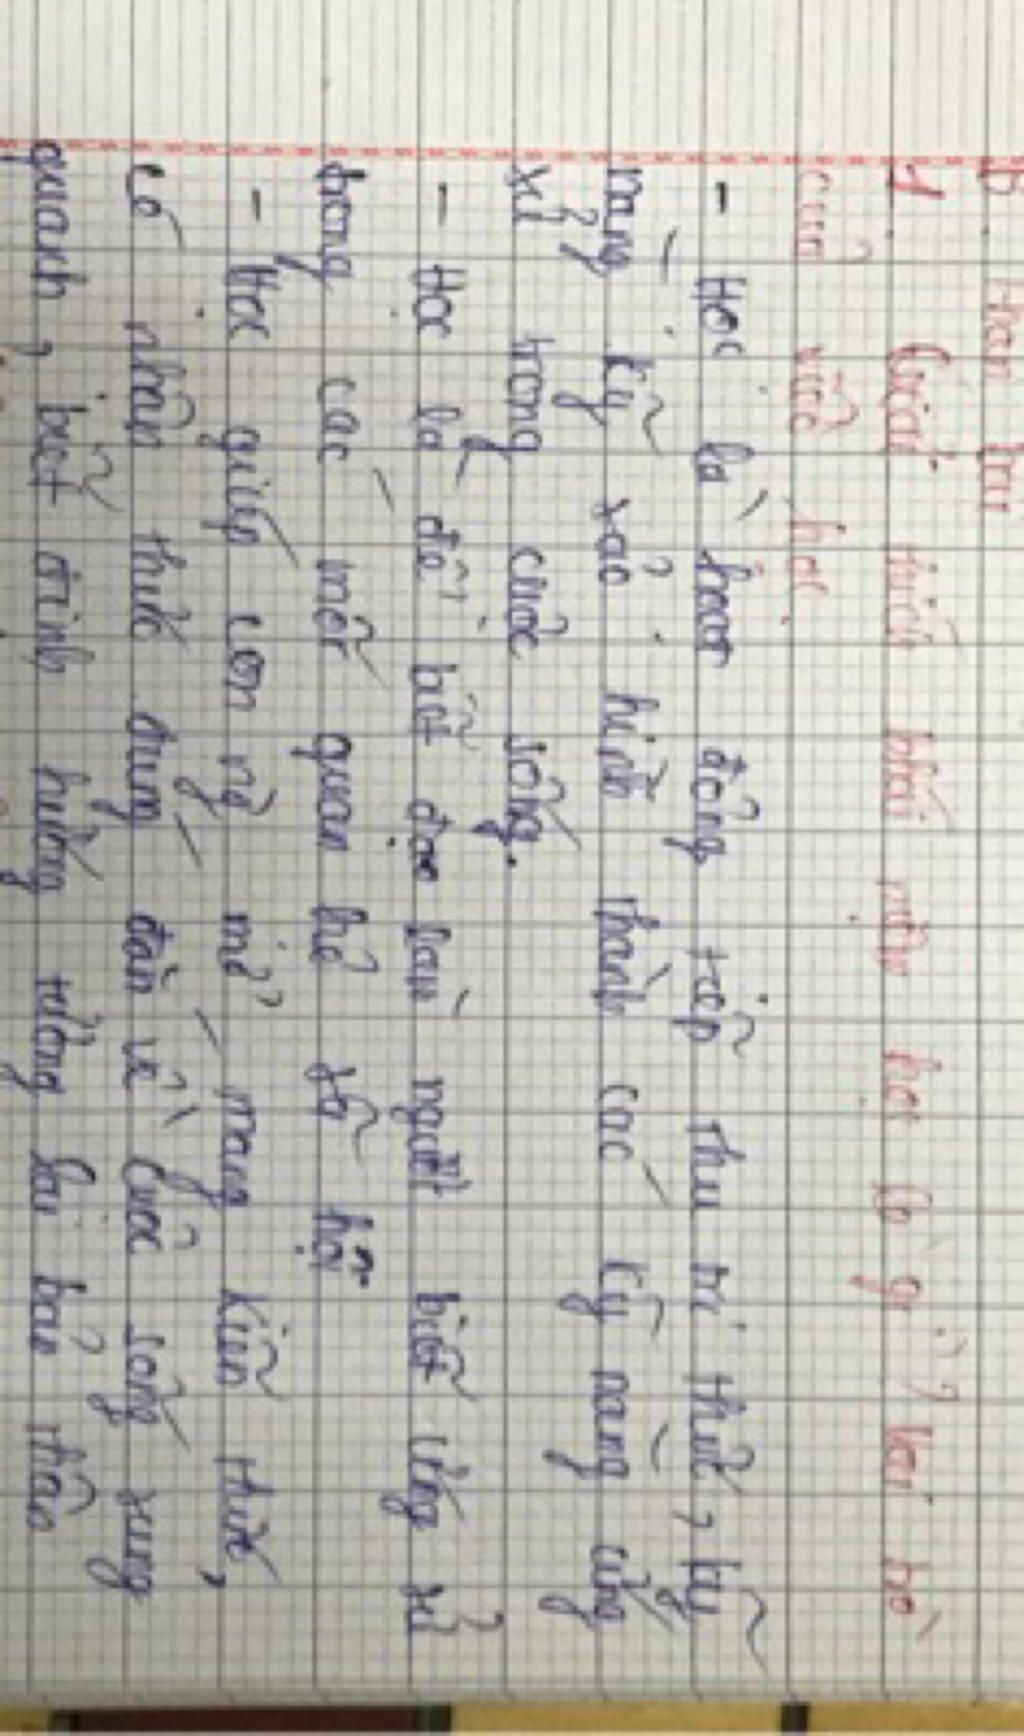 B Thân bài
1 Giải thích khái niệm học là gì? Vai trò
của việc học
- Học là hoạt động tiếp thu tri thức, kỹ
năng kỹ xảo, hình thành các kỹ năng ứng
xử trong cuộc sống.
- Học là để biết đạo làm người biết ứng xử
trong các mối quan hệ xã hội
- Học giúp con ng` mở mang kiến thức,
có nhận thức đúng đắn về cuộc sống xung
quanh, biết định hướng tương lai bản thân